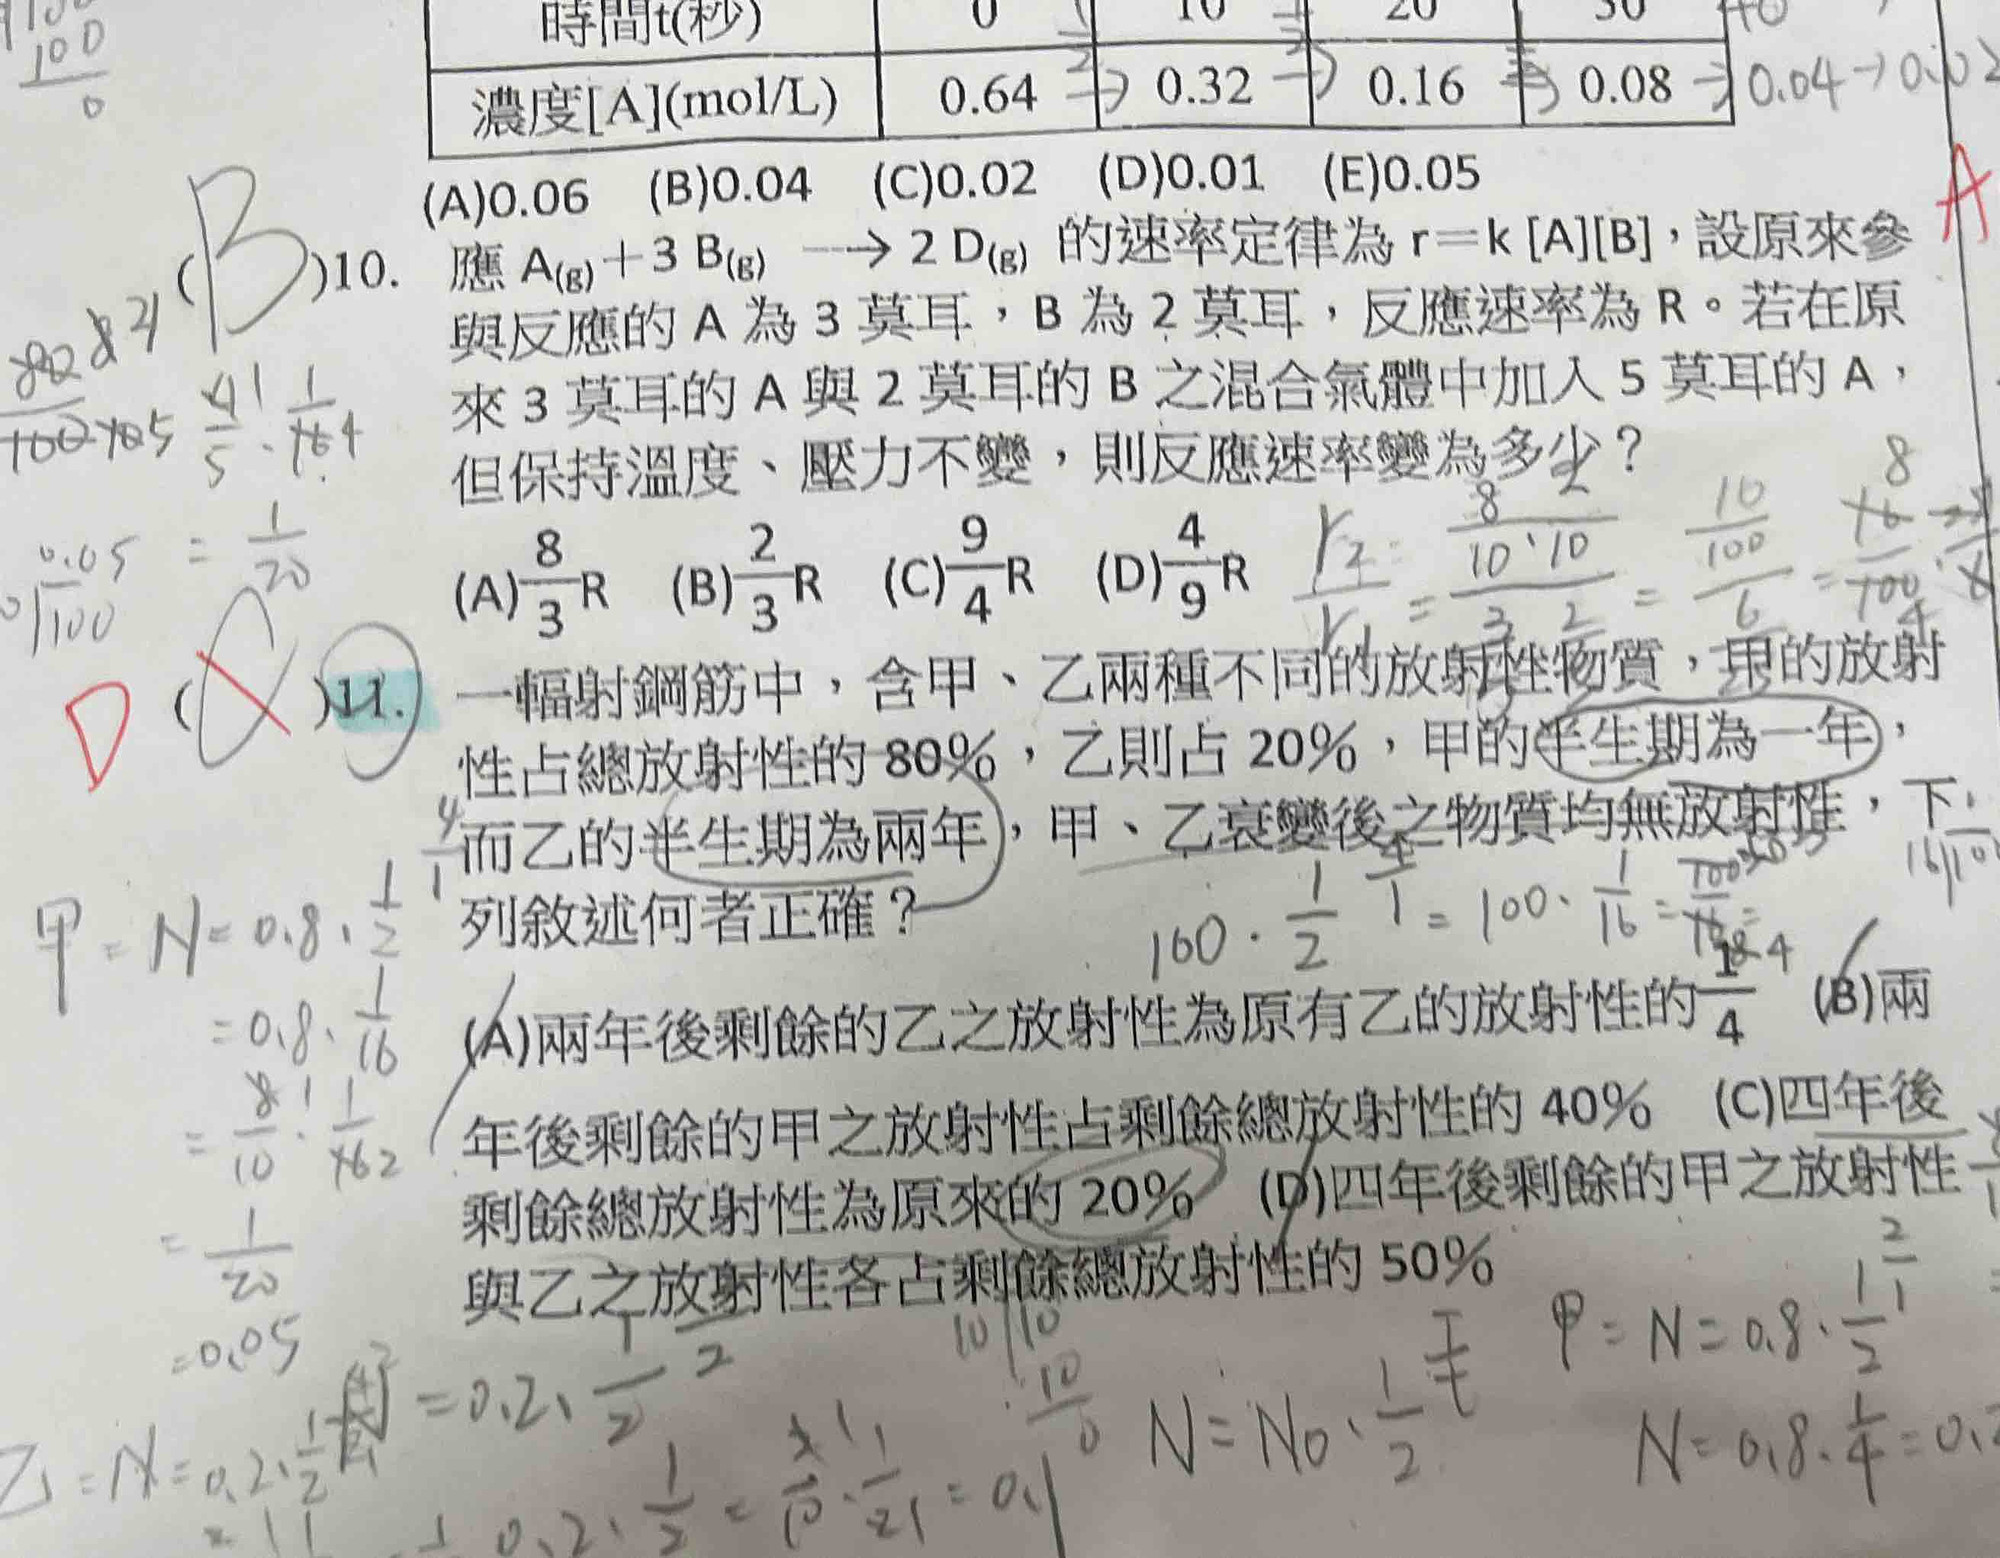 時間t(秒) 0 10 20 30 40
濃度[A](mol/L) 0.64 → 0.32 → 0.16 → 0.08 → 0.04 → 0.02
(A)0.06 (B)0.04 (C)0.02 (D)0.01 (E)0.05
A
(B)10. 應 A(g)＋3 B(g) ⟶ 2 D(g) 的速率定律為 r＝k [A][B]，設原來參
與反應的 A 為 3 莫耳，B 為 2 莫耳，反應速率為 R。若在原
來 3 莫耳的 A 與 2 莫耳的 B 之混合氣體中加入 5 莫耳的 A，
但保持溫度、壓力不變，則反應速率變為多少？
(A) 8/3 R (B) 2/3 R (C) 9/4 R (D) 4/9 R
D ( )11. 一輻射鋼筋中，含甲、乙兩種不同的放射性物質，甲的放射
性占總放射性的 80%，乙則占 20%，甲的半生期為一年，
而乙的半生期為兩年，甲、乙衰變後之物質均無放射性，下
列敘述何者正確？
100 · 1/2 4/1 = 100 · 1/16 =
(A)兩年後剩餘的乙之放射性為原有乙的放射性的 1/4 (B)兩
年後剩餘的甲之放射性占剩餘總放射性的 40% (C)四年後
剩餘總放射性為原來的 20% (D)四年後剩餘的甲之放射性
與乙之放射性各占剩餘總放射性的 50%
甲 = N = 0.8 · 1/2 4/1
= 0.8 · 1/16
= 8/10 · 1/16 2
= 1/20
= 0.05
乙 = N = 0.2 · 1/2
= 0.2 · 1/2
0.2 · 1/2 = = 0.1
N = No · 1/2 T/t
甲 = N = 0.8 · 1/2 2/1
N = 0.8 · 1/4 = 0.2